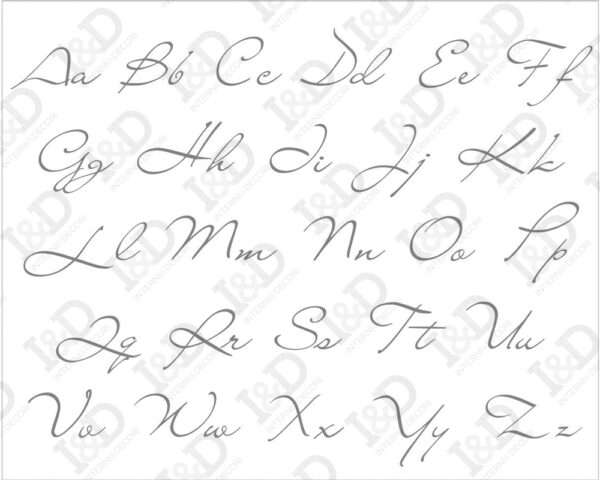 Aa Bb Cc Dd Ee Ff
Gg Hh Ii Jj Kk
Ll Mm Nn Oo Pp
Qq Rr Ss Tt Uu
Vv Ww Xx Yy Zz
I&D
INTERNI&DECORI